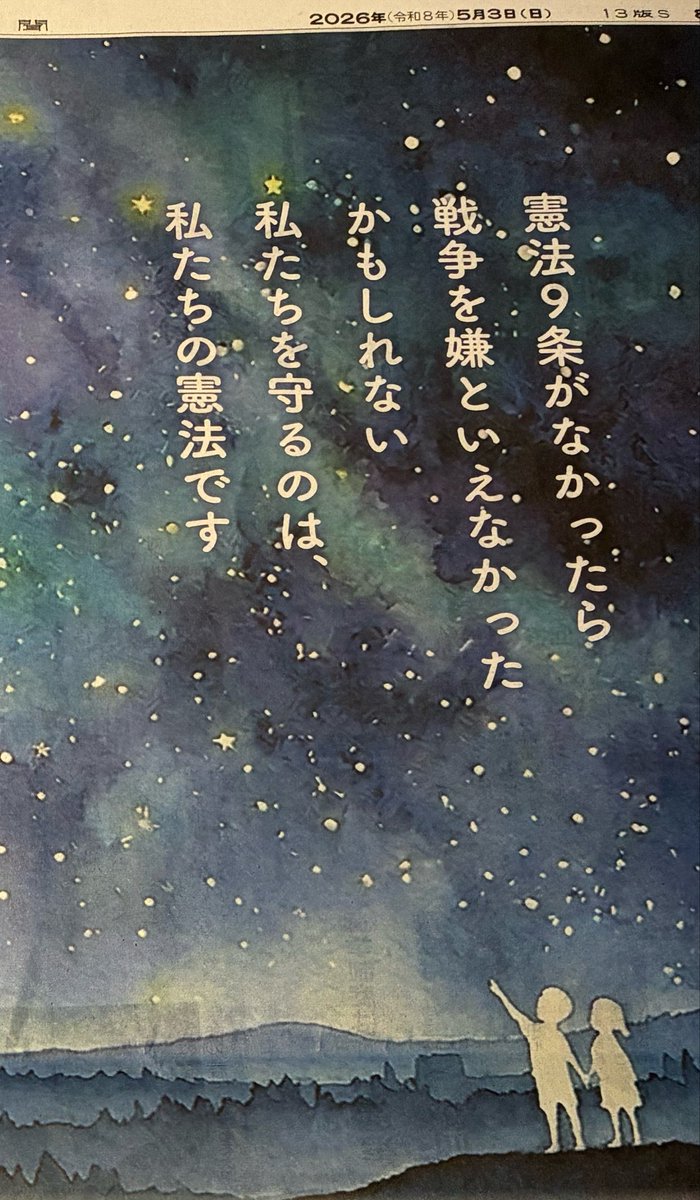 聞
2026年(令和8年)5月3日(日)
13版S
憲法9条がなかったら
戦争を嫌といえなかった
かもしれない
私たちを守るのは、
私たちの憲法です